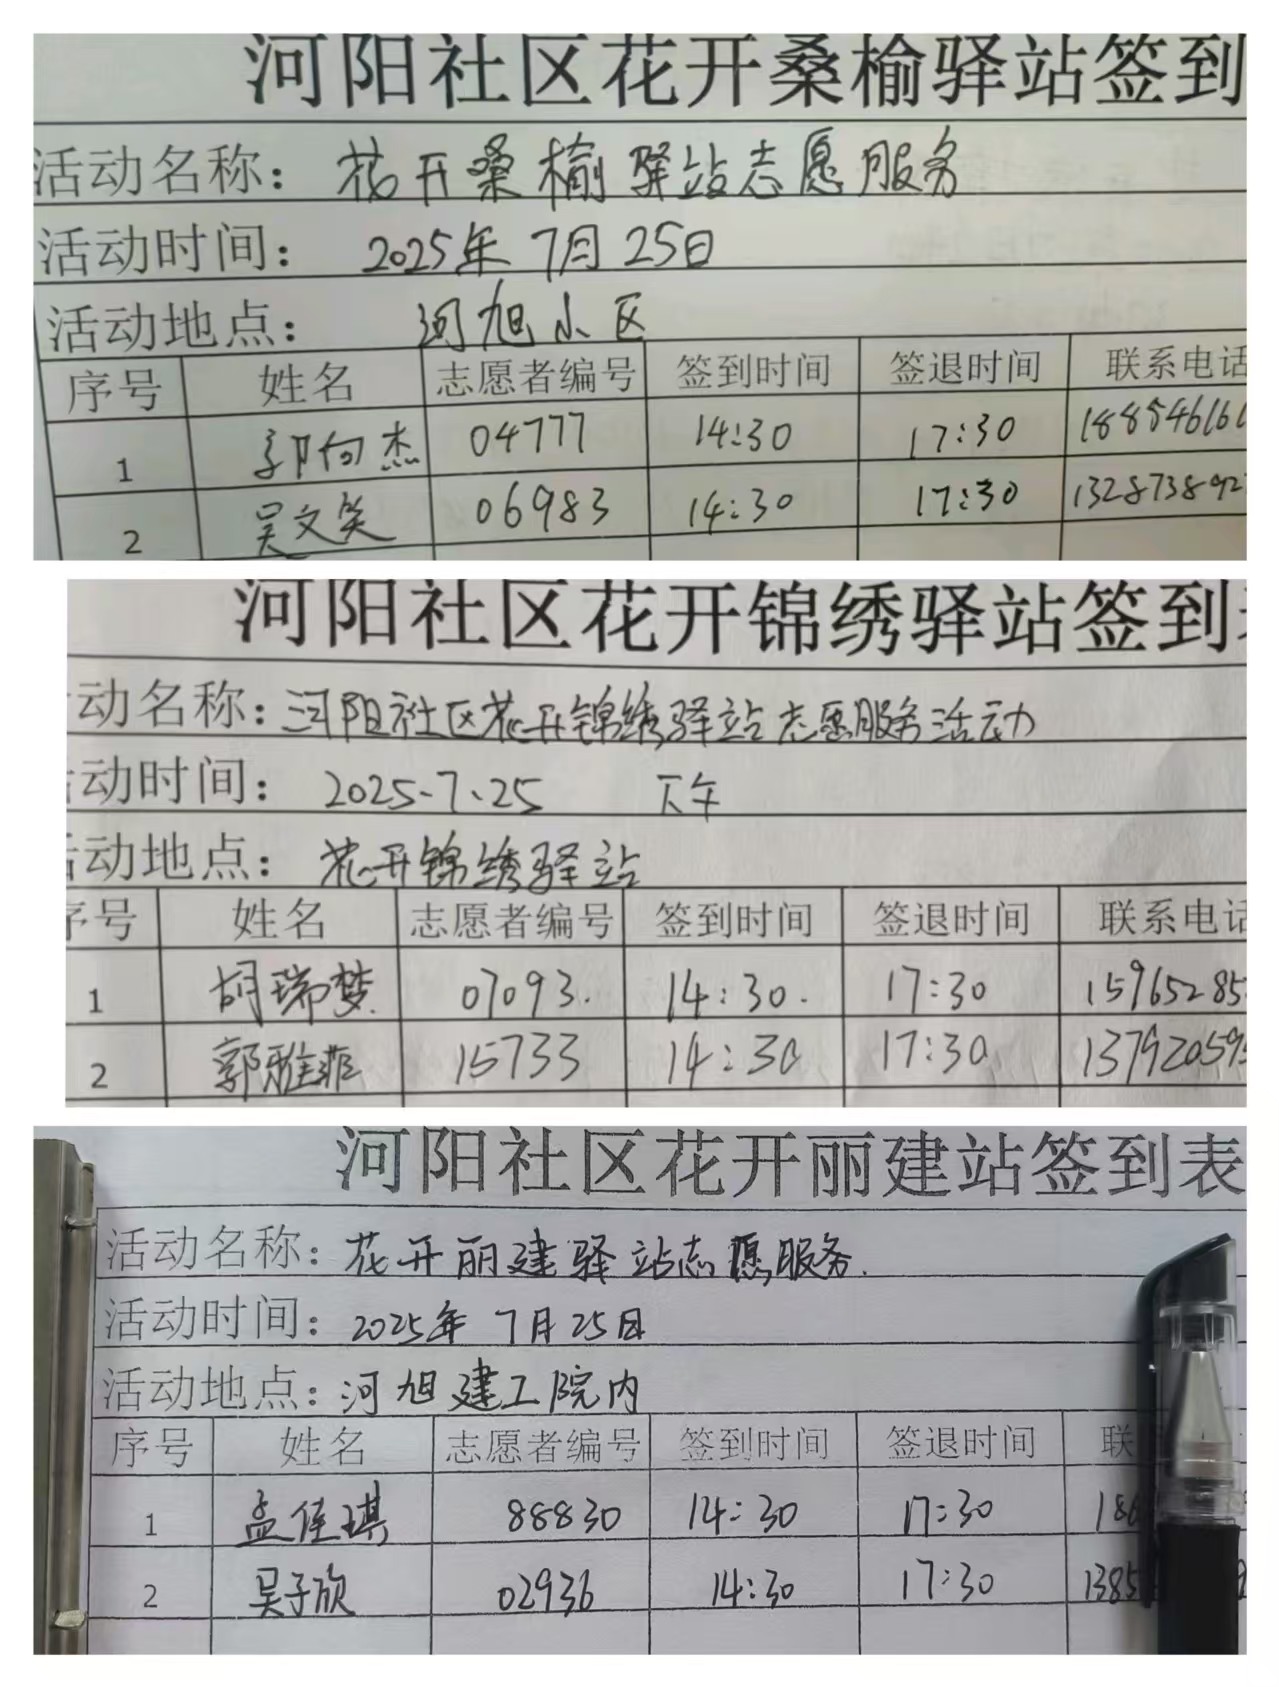 河阳社区花开桑榆驿站签到
活动名称：花开桑榆驿站志愿服务
活动时间：2025年7月25日
活动地点：河旭小区
序号 姓名 志愿者编号 签到时间 签退时间 联系电话
1 郭向杰 04777 14:30 17:30 188546161
2 吴文笑 06983 14:30 17:30 132873892
河阳社区花开锦绣驿站签到
动名称：河阳社区花开锦绣驿站志愿服务活动
动时间：2025.7.25 下午
动地点：花开锦绣驿站
序号 姓名 志愿者编号 签到时间 签退时间 联系电话
1 胡瑞梦 07093. 14:30. 17:30 15965285
2 郭雅菲 15733 14:30 17:30 137920595
河阳社区花开丽建站签到表
活动名称：花开丽建驿站志愿服务.
活动时间：2025年7月25日
活动地点：河旭建工院内
序号 姓名 志愿者编号 签到时间 签退时间 联
1 孟佳琪 88830 14:30 17:30 18
2 吴子欣 02936 14:30 17:30 1385